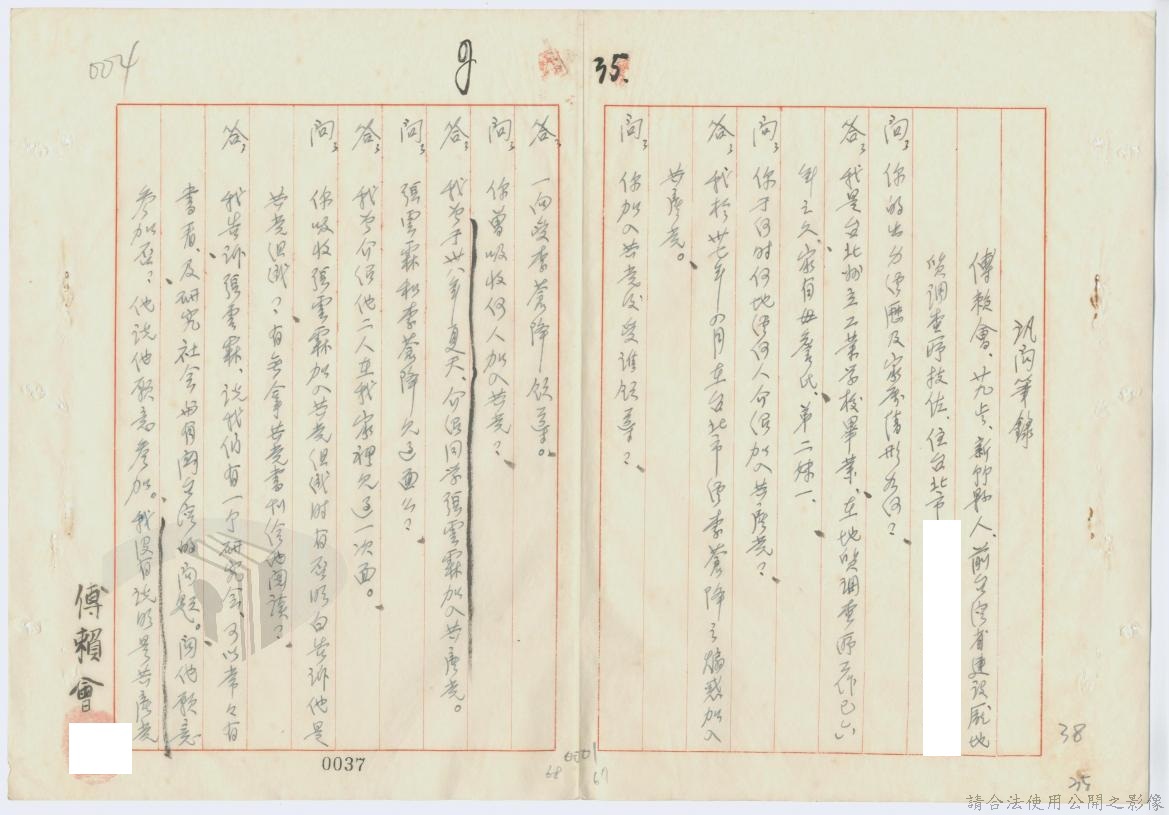 004
9
35.
訊問筆錄
傅賴會、廿九歲、新竹縣人、前台灣省建設廳地
質調查所技佐、住台北市
問：你的出身經歷及家庭情形如何？
答：我是台北州立工業學校畢業、在地質調查所工作已六
年之久、家有母、妻、弟二妹一、
問：你于何时何地經何人介紹加入共產党？
答：我於卅七年 月在台北市經李蒼降之煽惑加入
共產党。
問：你加入共党後受誰領導？
答：一向受李蒼降領導。
問：你曾吸收何人加入共党？
答：我曾于卅八年夏天、介紹同学張雲霖加入共產党。
問：張雲霖和李蒼降見過面么？
答：我曾介紹他二人在我家裡見過一次面。
問：你吸收張雲霖加入共党組織时有否明白告訴他是
共党組織？有无拿共党書刊給他閱讀？
答：我告訴張雲霖、說我们有一个研究会、可以常々有
書看、及研究社会与有関台湾的问题。问他願意
參加否？他说他願意參加。我没有说明是共產党
傅賴會
0037
0001
68
67
38
35
請合法使用公開之影像